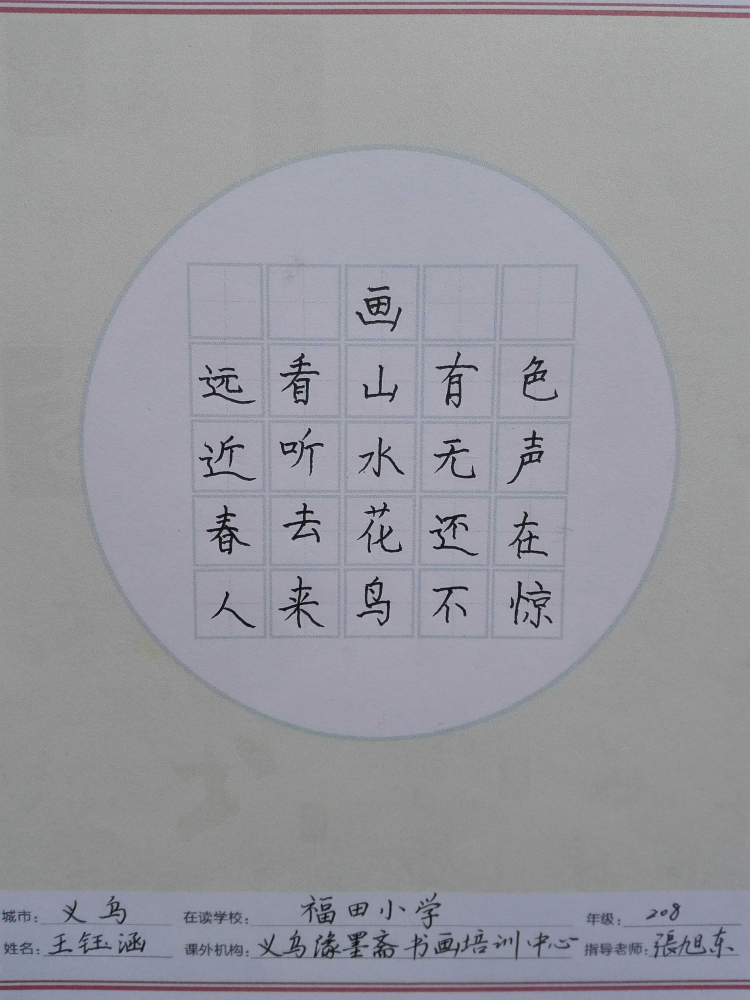 画
远看山有色
近听水无声
春去花还在
人来鸟不惊
城市：义乌 在读学校：福田小学 年级：208
姓名：王钰涵 课外机构：义乌缘墨斋书画培训中心 指导老师：張旭东